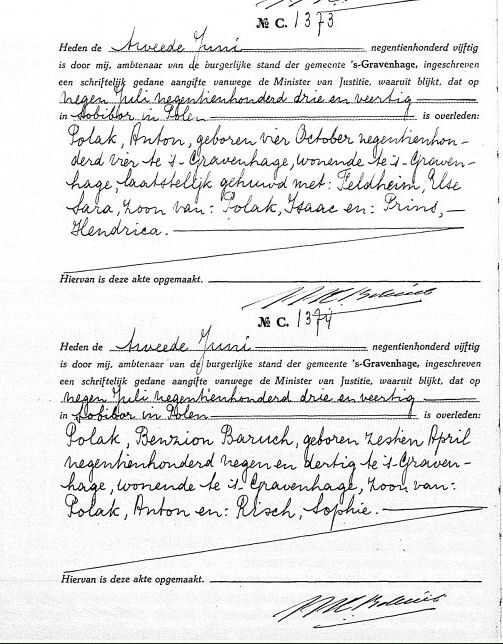 № C. 1373
Heden de tweede Juni negentienhonderd vijftig
is door mij, ambtenaar van de burgerlijke stand der gemeente 's-Gravenhage, ingeschreven
een schriftelijk gedane aangifte vanwege de Minister van Justitie, waaruit blijkt, dat op
negen Juli negentienhonderd drie en veertig
in Sobibor in Polen is overleden:
Polak, Anton, geboren vier October negentienhon-
derd vier te 's-Gravenhage, wonende te 's-Graven-
hage laatstelijk gehuwd met: Feldheim, Ilse
Sara, zoon van: Polak, Isaac en: Prins,
Hendrica.
Hiervan is deze akte opgemaakt.
№ C. 1374
Heden de tweede Juni negentienhonderd vijftig
is door mij, ambtenaar van de burgerlijke stand der gemeente 's-Gravenhage, ingeschreven
een schriftelijk gedane aangifte vanwege de Minister van Justitie, waaruit blijkt, dat op
negen Juli negentienhonderd drie en veertig
in Sobibor in Polen is overleden:
Polak, Benzion Baruch, geboren zestien April
negentienhonderd negen en dertig te 's-Graven-
hage, wonende te 's-Gravenhage, zoon van:
Polak, Anton en: Risch, Sophie.
Hiervan is deze akte opgemaakt.